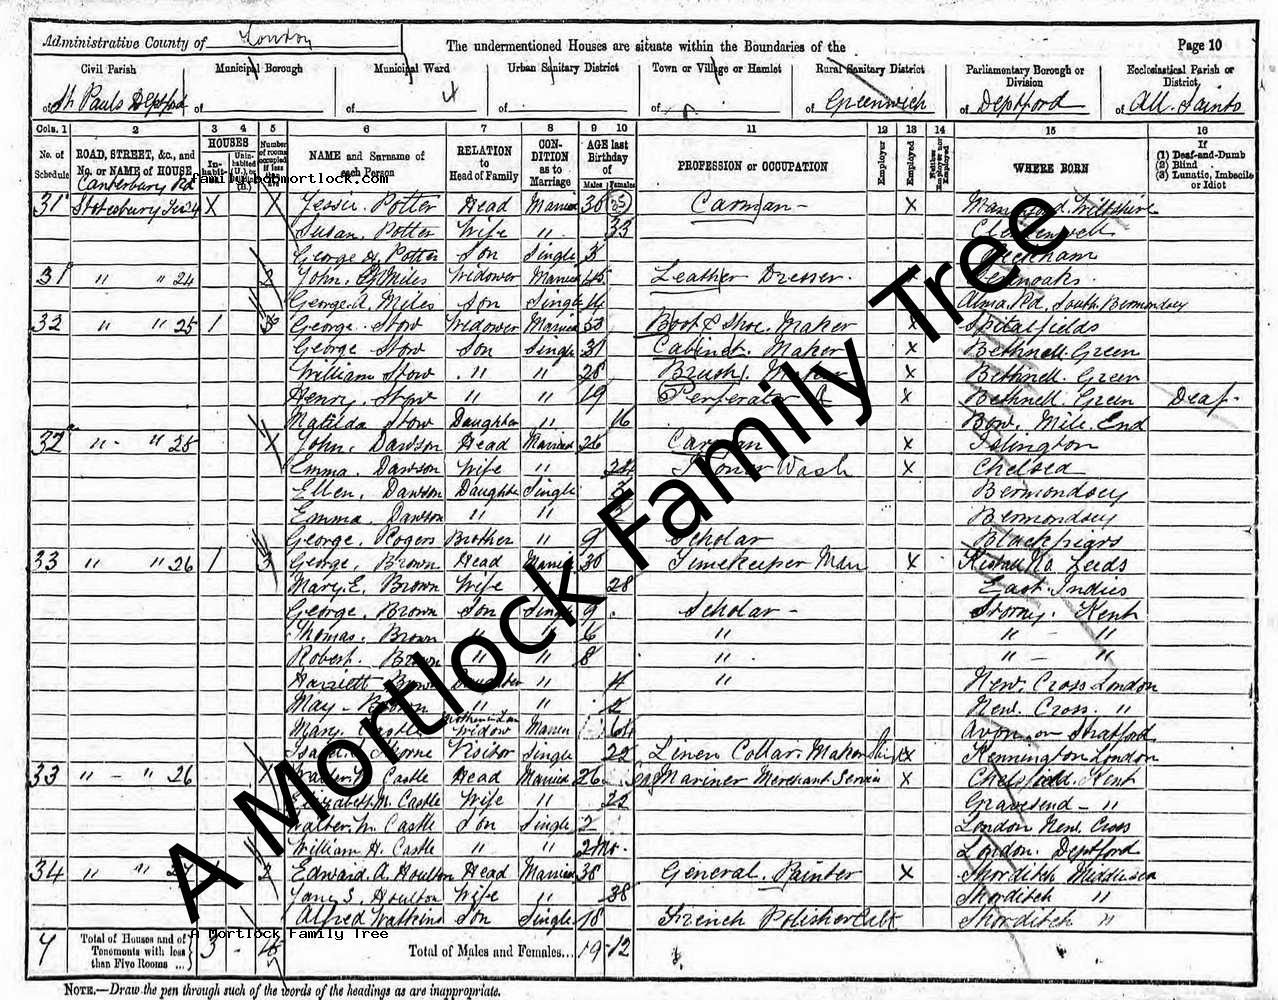 Administrative County of London
The undermentioned Houses are situate within the Boundaries of the
Page 10
Civil Parish
Municipal Borough
Municipal Ward
Urban Sanitary District
Town or Village or Hamlet
Rural Sanitary District
Parliamentary Borough or Division
Ecclesiastical Parish or District
of St. Pauls Deptford of of of of of Greenwich of Deptford of All Saints
Cols. 1 2 3 4 5 6 7 8 9 10 11 12 13 14 15 16
No. of Schedule
ROAD, STREET, &c., and No. or NAME of HOUSE
HOUSES
Inhabited
Uninhabited (U.), or Building (B.)
Number of rooms occupied if less than five
NAME and Surname of each Person
RELATION to Head of Family
CONDITION as to Marriage
AGE last Birthday of
Males Females
PROFESSION or OCCUPATION
Employer
Employed
Neither Employer nor Employed
WHERE BORN
If
(1) Deaf-and-Dumb
(2) Blind
(3) Lunatic, Imbecile or Idiot
Canterbury Rd
family.bp@mortlock.com
31 X Potter Head Married 30 Carman - X Wiltshire
Susan. Potter Wife " 33 Clerkenwell
George H. Potter Son Single 3
31 " " 24 2 John. Miles Widower Married 45 Leather Dresser.
George. A. Miles Son Single 14 Alma Rd. South Bermondsey
32 " " 25 1 George. Stow Widower Married 53 Boot & Shoe. Maker X Spitalfields
George Stow Son Single 31 Cabinet. Maker X Bethnell. Green
William Stow " " 28 Brush. Maker X Bethnell. Green
Henry. Stow " " 19 X Bethnell. Green Deaf-
Matilda Stow Daughter " 16 Bow. Mile. End
32 " - " 25 John. Dawson Head Married 26 Carman X Islington
Emma. Dawson Wife " 24 Wash X Chelsea
Ellen. Dawson Daughter Single 3 Bermondsey
Emma. Dawson " " 2 Bermondsey
George. Rogers Brother " 9 Scholar Blackfriars
33 " " 26 1 3 George. Brown Head Married 30 Timekeeper Man X Leeds
Mary. E. Brown Wife " 28 East. Indies
George. Brown Son Single 9 Scholar - Kent
Thomas. Brown " " 6 " " - "
Robert. Brown " " 8 " " - "
Harriett Brown Daughter " 4 " New. Cross London
May - Brown " " 2 New. Cross. "
Mary Castle Mother in Law Widow 64 Avon on Stratford
Thorne Visitor Single 22 Linen Collar. Maker X Kennington London
33 " - " 26 Walter Castle Head Married 26 Mariner Merchant Service X Chelsfield. Kent
Elizabeth M. Castle Wife " 22 Gravesend - "
Walter. W. Castle Son Single 2 London New. Cross
William H. Castle " " 2 Mo. London. Deptford
34 " " 2 Edward. A. Houlton Head Married 38 General. Painter X Shorditch Middlesex
Jany S. Houlton Wife " 38 Shorditch "
Alfred Watkins Son Single 18 French Polisher Cabt Shorditch "
4 Total of Houses and of Tenements with less than Five Rooms ... 3 - Total of Males and Females... 19 12
A Mortlock Family Tree
NOTE.—Draw the pen through such of the words of the headings as are inappropriate.
A Mortlock Family Tree